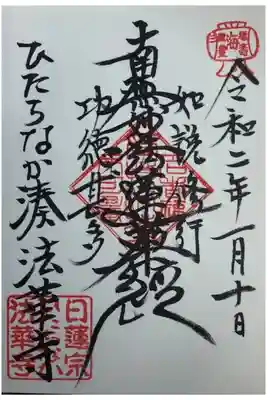 令和二年一月十日
如説修行
南無妙法蓮華経
功徳甚多
ひたちなか湊 法華寺
日蓮宗
法華寺